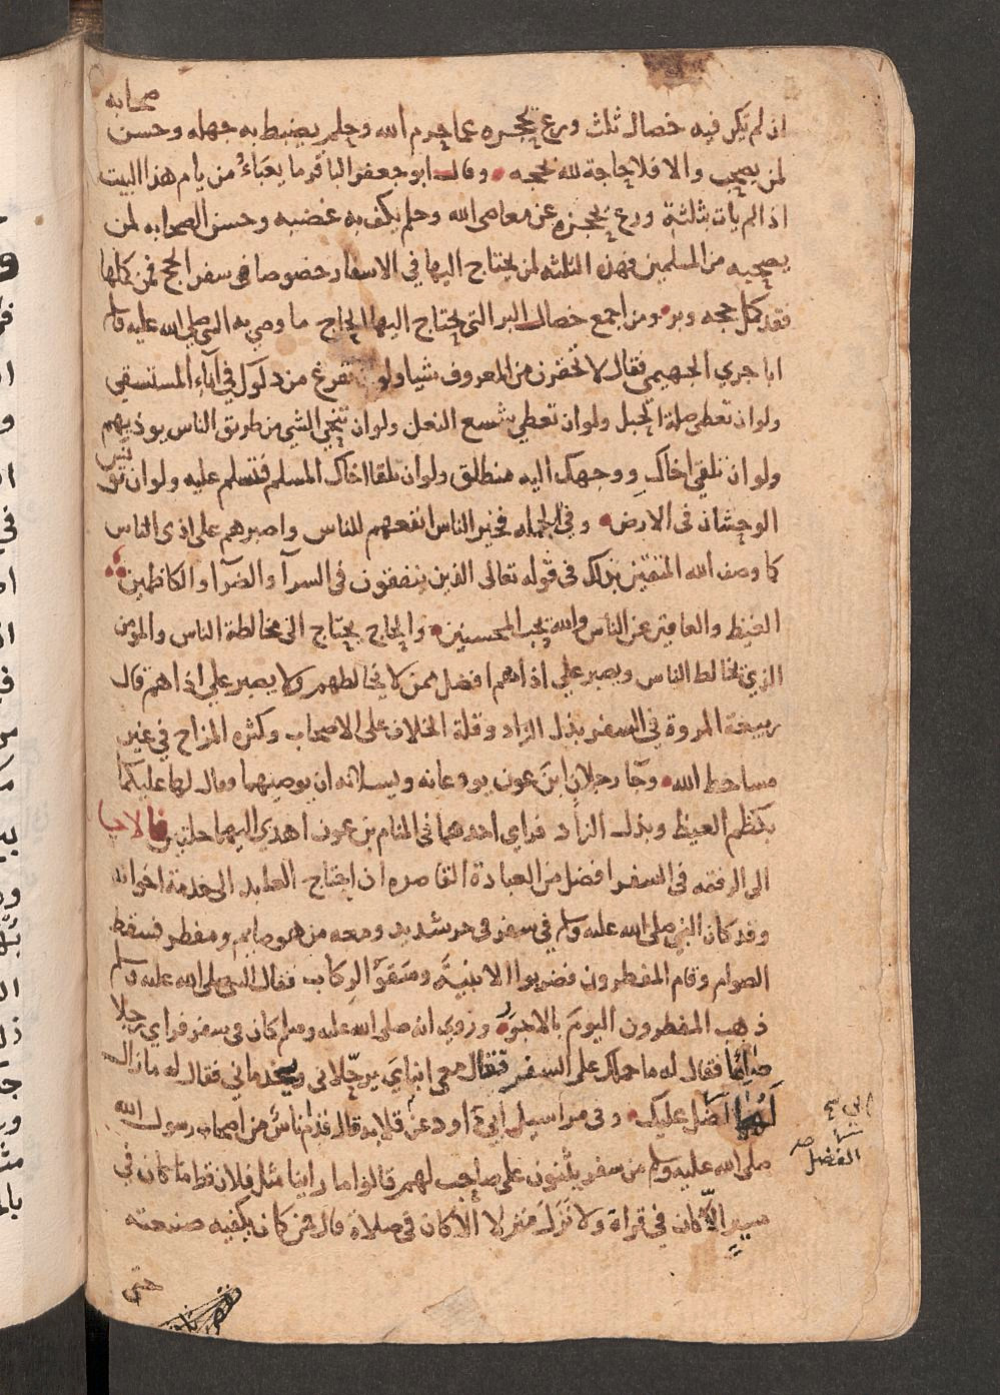 صحابه
ان لم تكن فيه خصال ثلث ورع يحجزه عما حرم الله وحلم يضبط به جهله وحسن
لمن يصحب والا فلا حاجة لله بحجه وقال ابو جعفر الباقر ما يعباء من يام هذا البيت
اذا لم يات بثلثة ورع يحجزه عن معاصى الله وحلم يكف به غضبه وحسن الصحابه لمن
يصحبه من المسلمين فهذه الثلثه لمن يحتاج اليها في الاسفار خصوصا في سفر الحج فمن كملها
فقد كمل حجه وبر ومن اجمع خصال البر التي يحتاج اليها الحاج ما وصى به النبي صلى الله عليه وسلم
ابا جري الهجيمي فقال لا تحقرن من المعروف شيا ولو تفرغ من دلوك في آناء المستسقي
ولو ان تعطى صلة الحبل ولو ان تعطي شسع النعل ولو ان تنحي الشي من طريق الناس يوذيهم
ولو ان تلقى اخاك ووجهك اليه منطلق ولو ان تلقا اخاك المسلم فتسلم عليه ولو ان تونس
الوحشان فى الارض وفي الجمله فخير الناس انفعهم للناس واصبرهم على اذى الناس
كما وصف الله المتقين بذلك فى قوله تعالى الذين ينفقون فى السرآ والضرآ والكاظمين
الغيظ والعافين عن الناس والله يحب المحسنين والحاج يحتاج الى مخالطة الناس والمومن
الذي يخالط الناس ويصبر علي اذاهم افضل ممن لا يخالطهم ولا يصبر علي اذاهم قال
ربيعة المروة في السفر بذل الزاد وقلة الخلاف على الاصحاب وكثره المزاح في غير
مساخط الله وجا رجلان ابن عون يودعانه ويسلانه ان يوصيهما وقال لهما عليكما
بكظم الغيظ وبذل الزاد فراي احدهما فى المنام بن عون اهدى اليهما حلتين فالاحسان
الى الرفقه فى السفر افضل من العبادة القاصره ان احتاج العابد الى خدمة اخوانه
وقد كان النبي صلى الله عليه وسلم في سفر في حر شديد ومعه من هو صايم ومفطر فسقط
الصوام وقام المفطرون فضربوا الابنية وسقوا الركاب فقال النبي صلى الله عليه وسلم
ذهب المفطرون اليوم بالاجر وروي انه صلى الله عليه وسلم كان في سفر فراي رجلا
صائما فقال له ما حملك على السفر فقال معى ابناي يرحلانى ويخدمانى فقال له ما زال
لهما الفضل عليك وفى مراسيل ابى داود عن ابي قلابه قال قدم ناس من اصحاب رسول الله
صلى الله عليه وسلم من سفر يثنون على صاحب لهم قالوا ما راينا مثل فلان قط ما كان في
سير الا كان في قراة ولا نزل منزلا الا كان في صلاة قال فمن كان يكفيه صنعته
الفضل
حتى